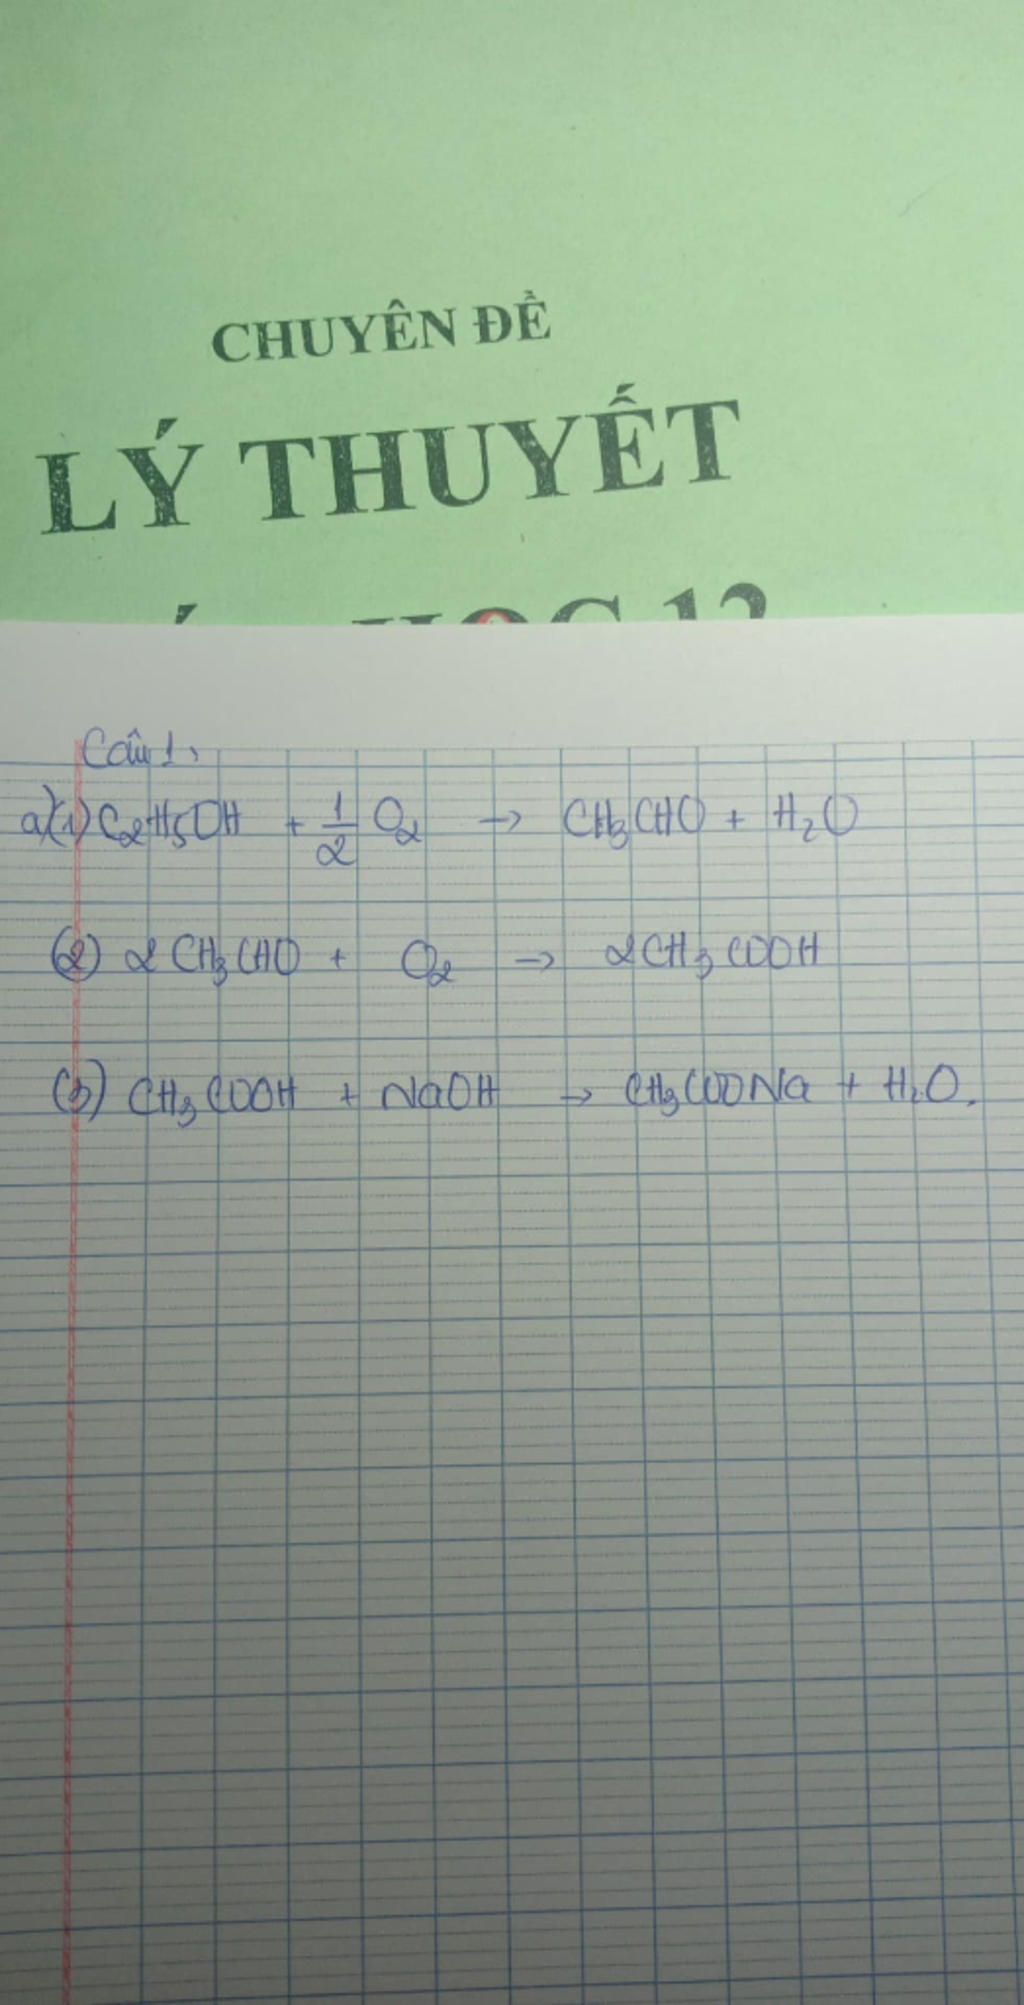 CHUYÊN ĐỀ
LÝ THUYẾT
HỌC 12
Câu 1,
a) (1) C2H5OH + 1/2 O2 → CH3CHO + H2O
(2) 2CH3CHO + O2 → 2CH3COOH
(3) CH3COOH + NaOH → CH3COONa + H2O.